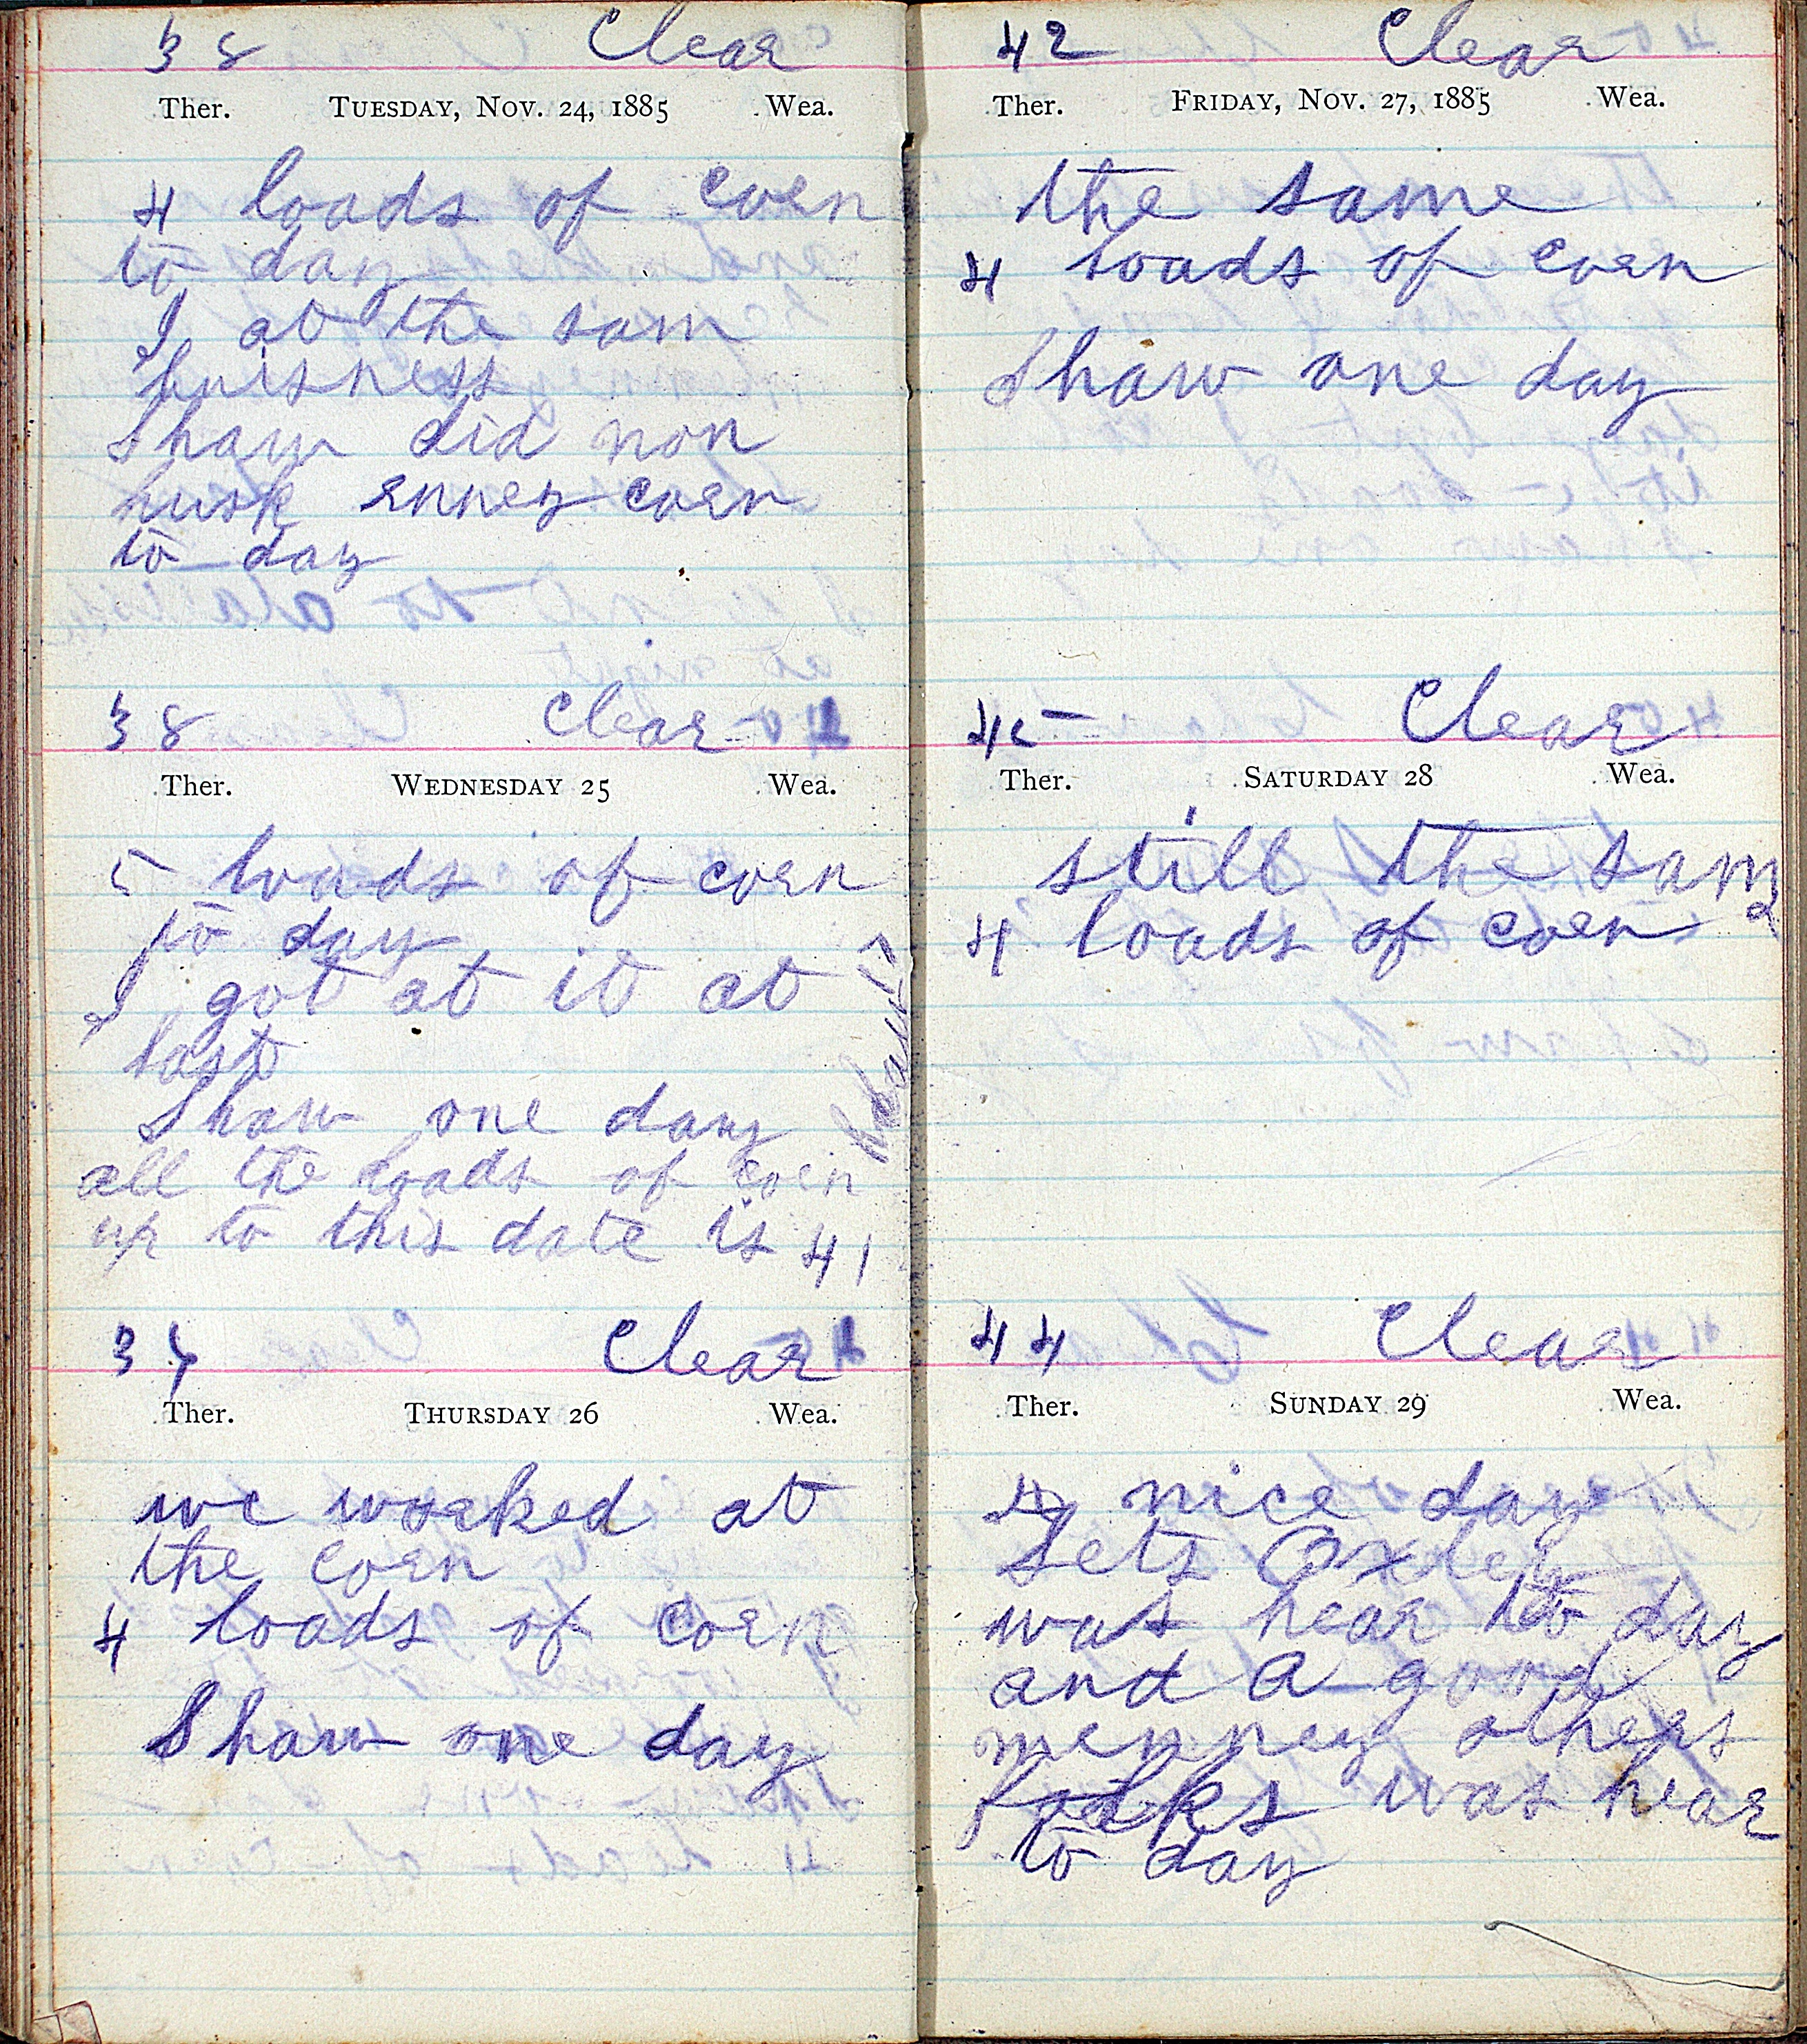 38 Clear
Ther. TUESDAY, NOV. 24, 1885 Wea.
4 loads of corn
to day
I at the sam
buisness
Shaw did non
husk enney corn
to day
38 Clear
Ther. WEDNESDAY 25 Wea.
5 loads of corn
to day
I got at it at
last
Shaw one day
all the loads of corn
up to this date is 41
Clear
Ther. THURSDAY 26 Wea.
we worked at
the corn
4 loads of corn
Shaw one day
42 Clear
Ther. FRIDAY, NOV. 27, 1885 Wea.
the same
4 loads of corn
Shaw one day
45 Clear
Ther. SATURDAY 28 Wea.
still the same
4 loads of corn
44 Clear
Ther. SUNDAY 29 Wea.
A nice day
Oxley
was hear to day
and a good
menney others
folks was hear
to day